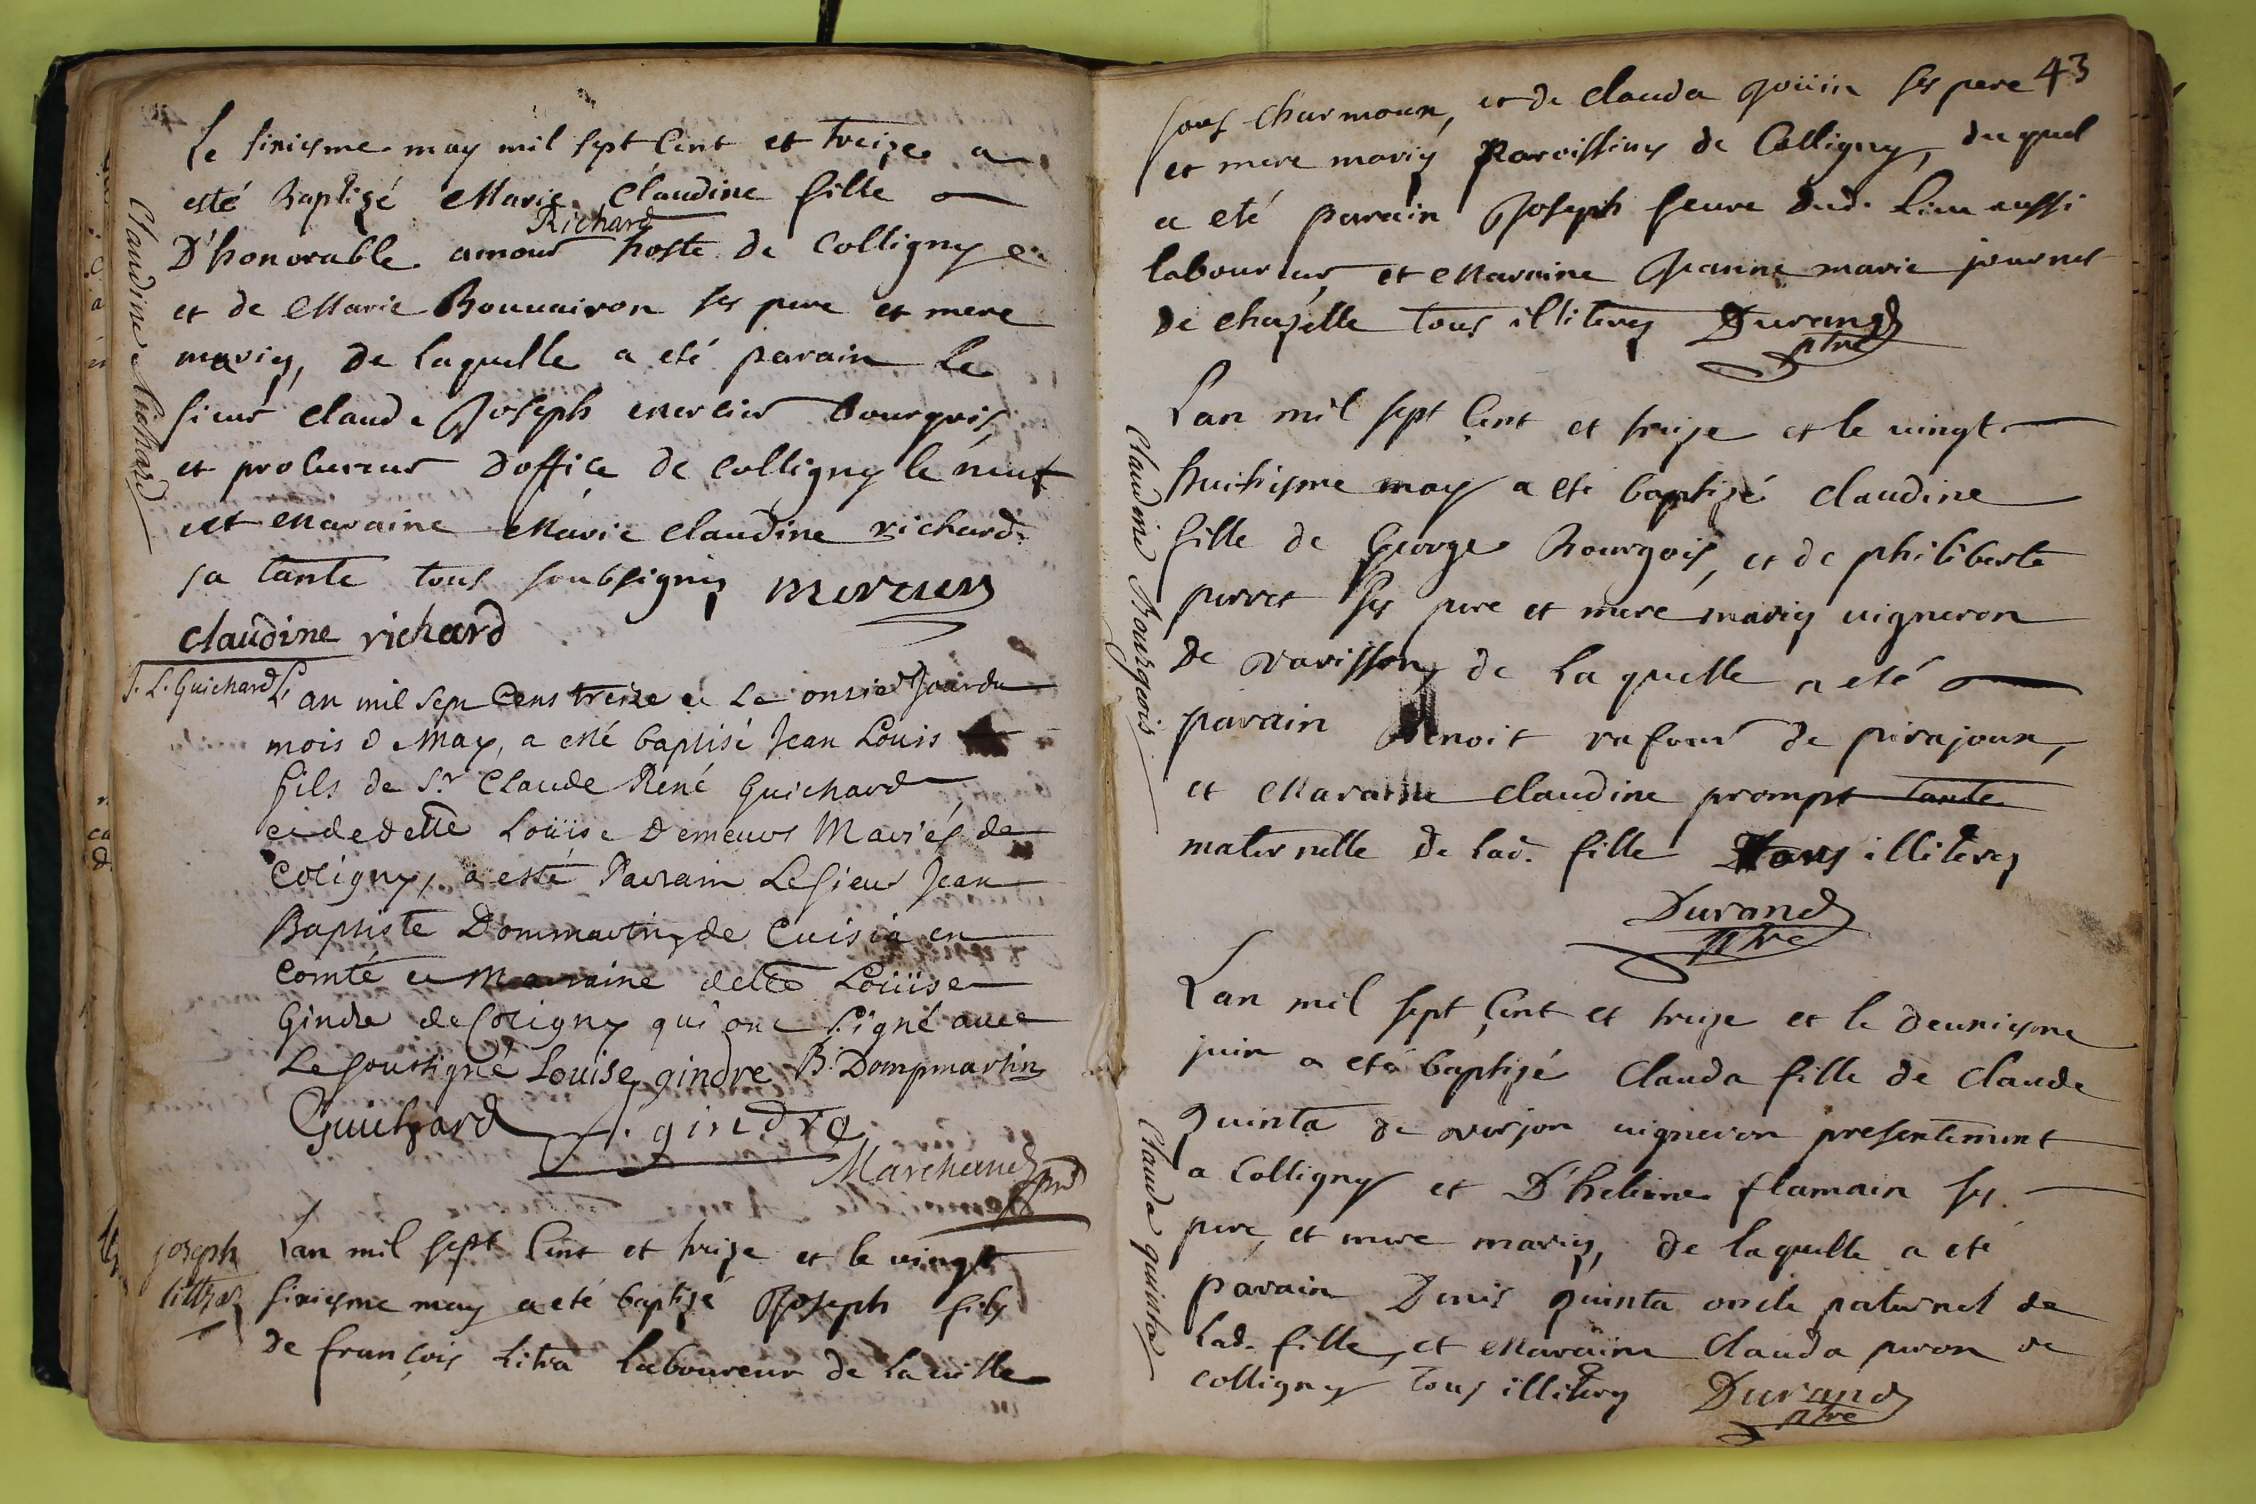 Claudine Richard
Le sixiesme may mil sept Cent et treize a
esté Baptizé Marie Claudine fille
Richard
D'honorable amour hoste de Colligny
et de Marie Bouuairon ses pere et mere
mariez, de laquelle a eté parain le
sieur Claude Joseph mercier bourgois,
et procureur D'office de Colligny le neuf
et Maraine Marie Claudine richard
sa tante tous soubsignez mercier
claudine richard
J. L. Guichard
L'an mil sept Cens treize et Le onzie Jour du
mois d May, a esté baptisé Jean Louis
fils de Sr. Claude René Guichard
et de delle Loüise Demeurs Mariés de
Coligny, a esté Parrain Le Sieur Jean
Baptiste Dommartin de Cuisia en
Comté et Marraine delle Loüise
Gindre de Coligny qui ont signé avec
Le soussigné Louise gindre B. Dompmartin
Guichard J. gindre
Marchand
joseph
Lan mil sept Cent et treize et le vingt
sixiesme may a eté baptizé Joseph fils
de françois Litra Laboureur de La uille
43
sous Charmoux, et de Clauda Joüin ses pere
et mere mariez Paroissiens de Colligny, duquel
a eté parain Joseph feure dud. Lieu aussi
laboureur, et Maraine Jeanne marie journet
de chazelle tous illiterez Durand
ptre
Claudine Bourgois
Lan mil sept Cent et treize et le vingt
huitiesme may a eté baptizé Claudine
fille de George Bourgois, et de philiberte
perret ses pere et mere mariez uigneron
de de Laquelle a eté
parain Benoit rafour de pirajoux,
et Maraine Claudine prompt tante
maternelle de lad. fille Tous illiterez
Durand
ptre
Clauda quinta
Lan mil sept Cent et treize et le deuxiesme
juin a eté baptizé Clauda fille de Claude
quinta de uerjon uigneron presentement
a Colligny et D'helaine flamain ses
pere, et mere mariez, de laquelle a eté
parain Denis quinta oncle paternel de
lad. fille, et Maraine Clauda piron de
Colligny tous illiterez Durand
ptre